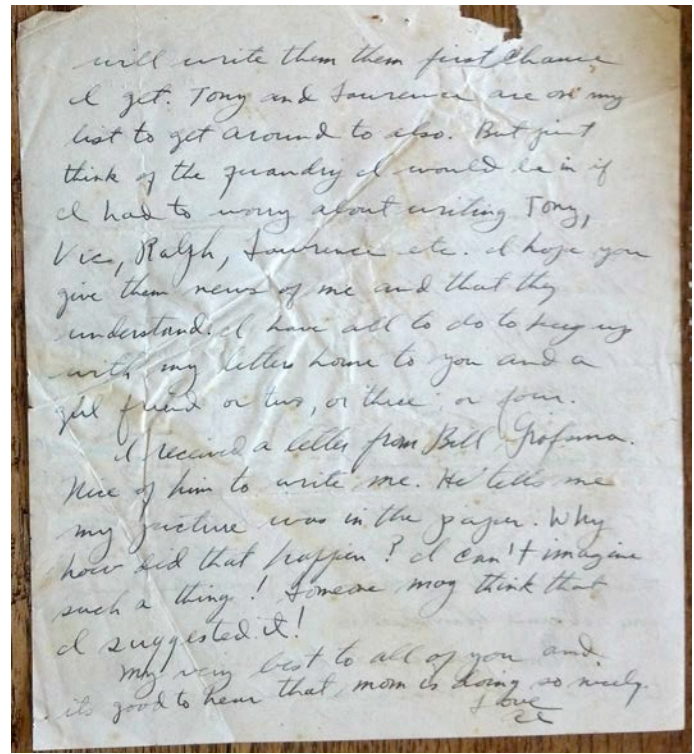 will write them them first chance
I get. Tony and Lawrence are on my
list to get around to also. But just
think of the quandry I would be in if
I had to worry about writing Tony,
Vic, Ralph, Lawrence etc. I hope you
give them news of me and that they
understand. I have all to do to keep up
with my letters home to you and a
girl friend or two, or three or four.
I received a letter from Bill
Nice of him to write me. He tells me
my picture was in the paper. Why
how did that happen? I can't imagine
such a thing! Someone may think that
I suggested it!
My very best to all of you and
its good to hear that mom is doing so nicely.
Love